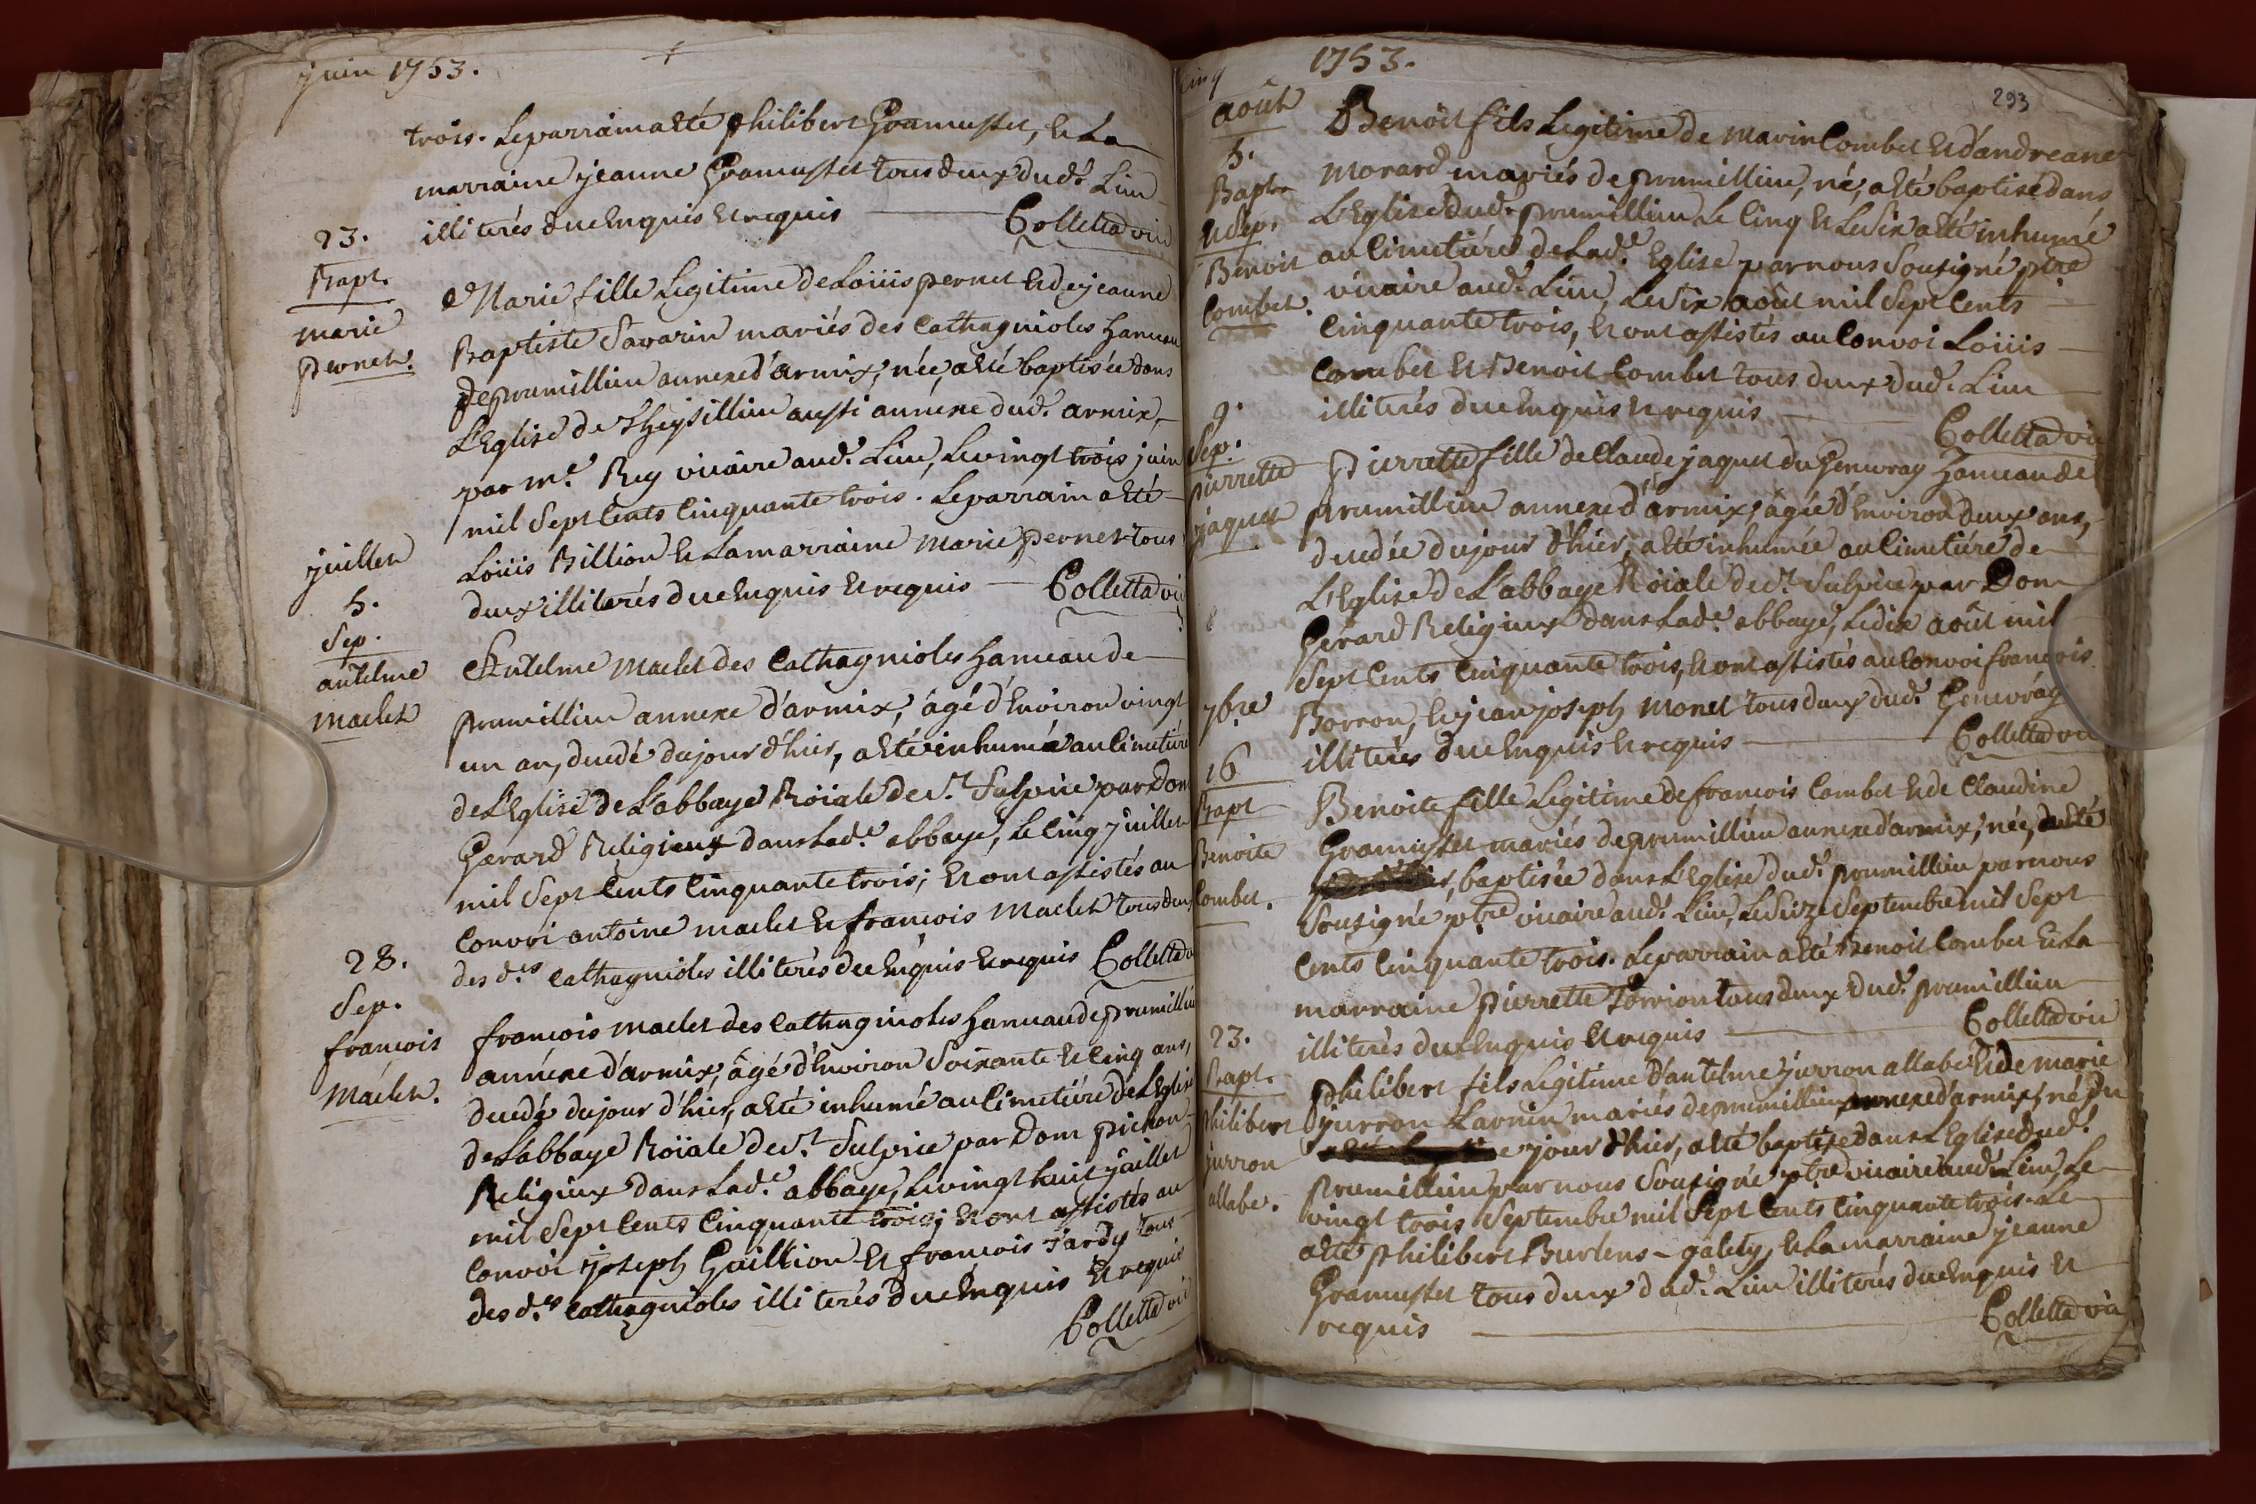 juin 1753.
trois. Le parrain a êté philibert Gramusset, et La
marraine jeanne Gramusset tous deux dud.t Lieu
illiterés due enquis et requis Colletta vic
23.
Bapt.
marie
pernet.
Marie fille Legitime de Loüis pernet et de jeanne
Baptiste Savarin mariés des Cathagnioles hameau
de prumillieu annexe d'armix, née, a êté baptisée dans
L'Eglise de Theysillieu aussi annexe dud.t armix,
par m.e Rey vicaire aud.t Lieu, Le vingt trois juin
mil Sept Cents Cinquante trois. Le parrain a êté
Loüis Billion et La marraine marie pernet tous
deux illiterés due enquis et requis Colletta vic
juillet
5.
Sep.
antelme
maclet
Antelme maclet des Cathagnioles hameau de
prumillieu annexe d'armix, âgé d'Environ vingt
un an, decedé du jour d'hier, a êté inhumé au Cimetiére
de L'Eglise de L'abbaye Roïale de S.t Sulpice par Dom
Gerard Religieux dans Lad.e abbaye, Le Cinq juillet
mil Sept Cents Cinquante trois; et ont assistés au
Convoi antoine maclet et francois maclet tous deux
des d.es Cathagnioles illiterés due enquis et requis Colletta vic
28.
Sep.
francois
maclet.
francois maclet des Cathagnioles hameau de prumillieu
annexe d'armix, âgé d'Environ Soixante et Cinq ans,
decedé du jour d'hier, a êté inhumé au Cimetiére de L'Eglise
de L'abbaye Roïale de S.t Sulpice par Dom pichon
Religieux dans Lad.e abbaye, Le vingt huit juillet
mil Sept Cents Cinquante trois; et ont assistés au
Convoi joseph Guillion et francois Tardy tous
des d.es Cathagnioles illiterés due enquis et requis
Colletta vic
1753.
293
août
5.
Bapt.
et Sep.
Benoit
Combet.
Benoit fils Legitime de marin Combet et d'andreane
morard mariés de prumillieu, né, a êté baptisé dans
L'Eglise dud.t prumillieu Le Cinq et Le Six a êté inhumé
au Cimetiére de Lad.e Eglise par nous Sousigné ptre
vicaire aud.t Lieu, Le Six août mil Sept Cents
Cinquante trois, et ont assistés au Convoi Loüis
Combet et Benoit Combet tous deux dud.t Lieu
illiterés due enquis et requis
Colletta vic
9.
Sep.
pierrette
jaquet
Pierrette fille de Claude jaquet du Genevray hameau de
prumillieu annexe d'armix, âgée d'Environ deux ans,
decedée du jour d'hier, a êté inhumée au Cimetiére de
L'Eglise de L'abbaye Roïale de S.t Sulpice par Dom
Gerard Religieux dans Lad.e abbaye, Le dix août mil
Sept Cents Cinquante trois, et ont assistés au Convoi francois
Borron, et jean joseph monet tous deux dud.t Genevray
illiterés due enquis et requis
Colletta vic
7bre
16
Bapt
Benoite
Combet.
Benoite fille Legitime de francois Combet et de Claudine
Gramusset mariés de prumillieu annexe d'armix, née, a êté
baptisée dans L'Eglise dud.t prumillieu par nous
Sousigné ptre vicaire aud.t Lieu, Le Seize Septembre mil Sept
Cents Cinquante trois. Le parrain a êté Benoit Combet et La
marraine pierrette tous deux dud.t prumillieu
illiterés due enquis et requis
Colletta vic
23.
Bapt.
philibert
jurron
allabe.
philibert fils Legitime d'antelme jurron allabe et de marie
jurron Lavnin mariés de prumillieu annexe d'armix, né du
jour d'hier, a êté baptisé dans L'Eglise dud.t
prumillieu par nous Sousigné ptre vicaire aud.t Lieu, Le
vingt trois Septembre mil Sept Cents Cinquante trois. Le
a êté philibert Burlens-galety, et La marraine jeanne
Gramusset tous deux dud.t Lieu illiterés due enquis et
requis
Colletta vic